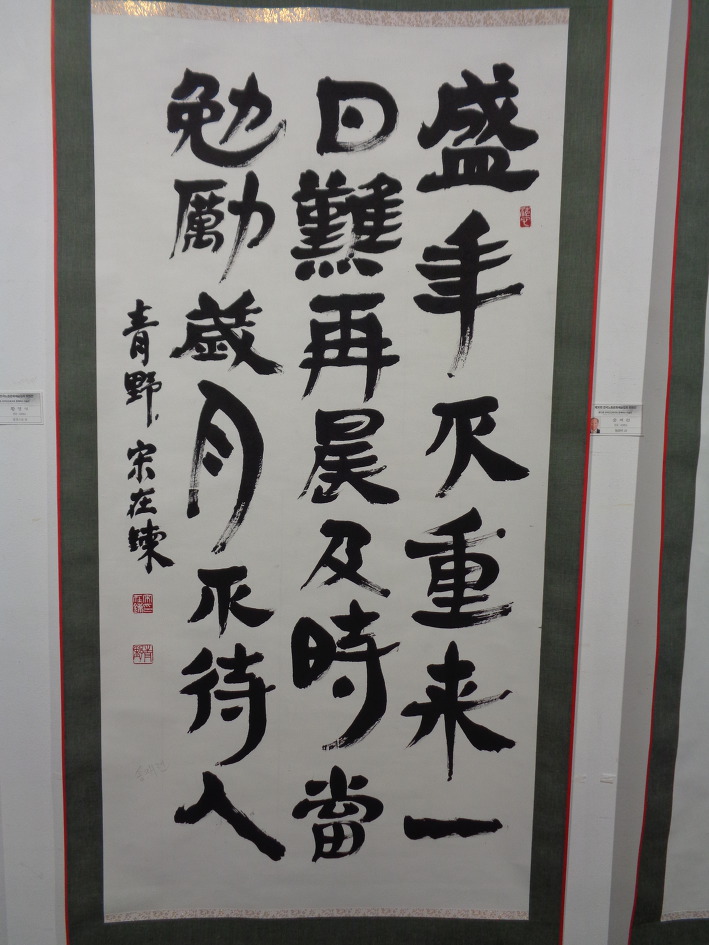 盛年不重来一
日難再晨及時當
勉勵歲月不待人
青野 宋在鍊